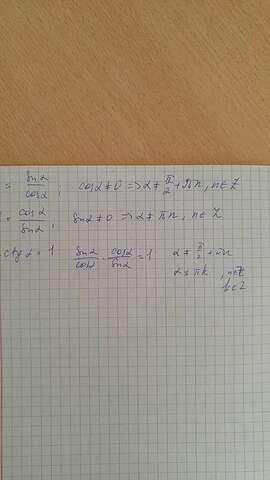 = sin α / cos α ; cos α ≠ 0 => α ≠ π/2 + πn, n∈Z
= cos α / sin α ; sin α ≠ 0 => α ≠ πn, n∈Z
ctg α = 1 sin α / cos α · cos α / sin α = 1 α ≠ π/2 + πn
α ≠ πk , n∈Z
k∈Z